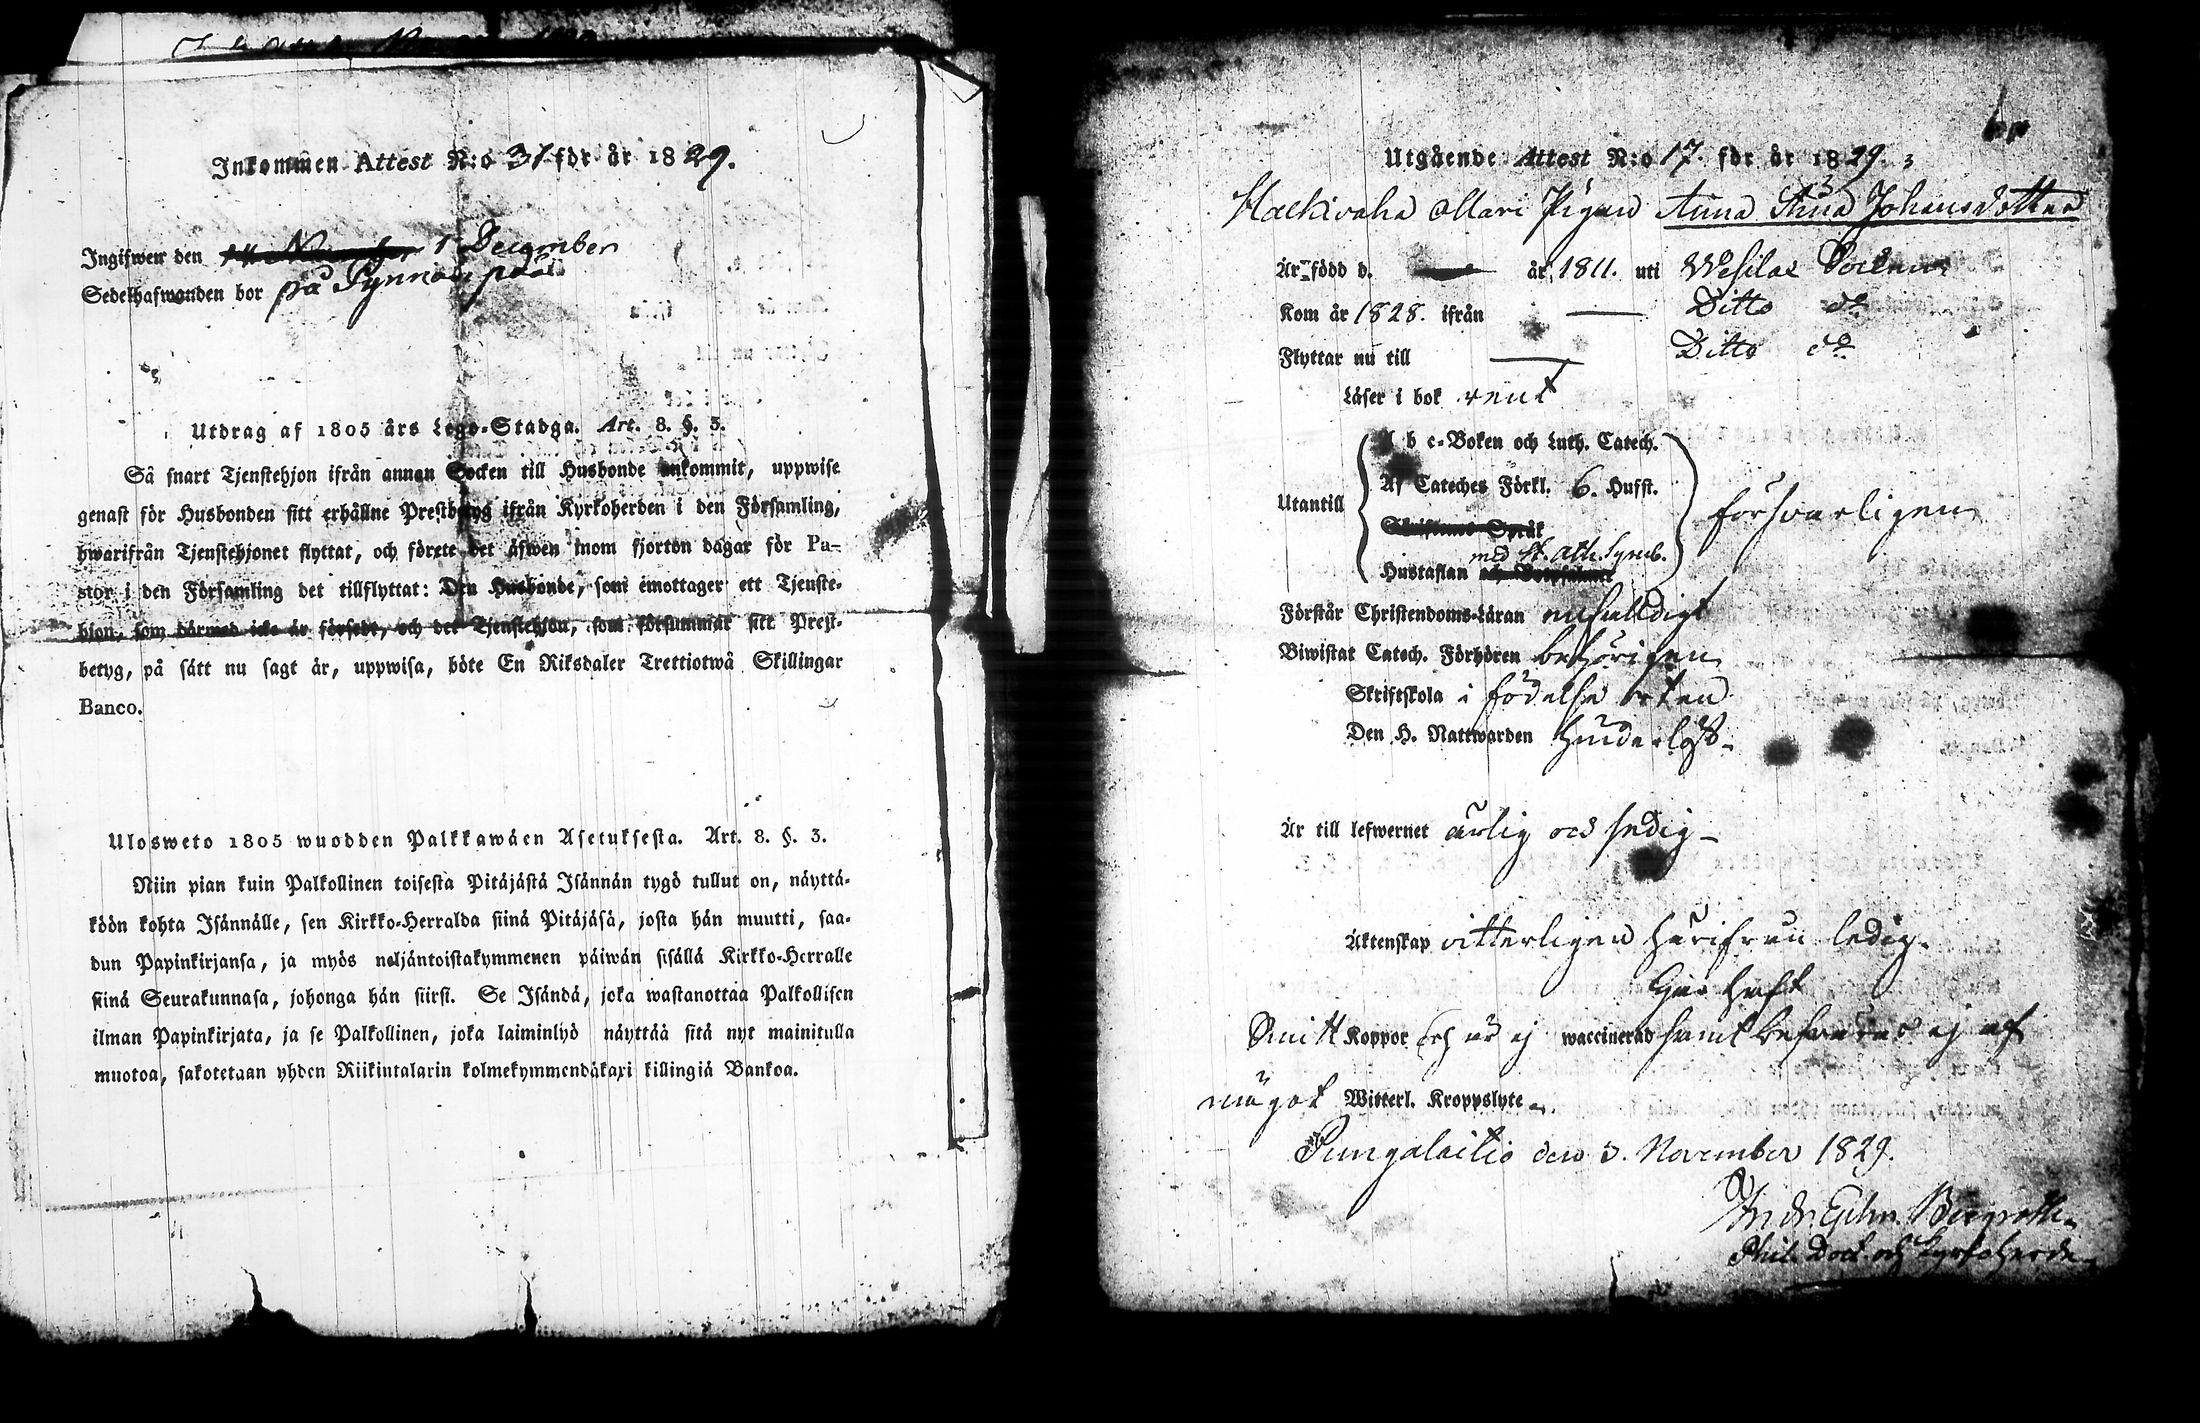 Inkommen Attest N:o 31 för år 1829.
Ingifwen den 1 December
Sedelhafwanden bor på
Utdrag af 1805 års Lego-Stadga. Art. 8. §. 3.
Så snart Tjenstehjon ifrån annan Socken till Husbonde ankommit, uppwise
genast för Husbonden sitt erhållne Prestbetyg ifrån Kyrkoherden i den Församling,
hwarifrån Tjenstehjonet flyttat, och förete det äfwen inom fjorton dagar för Pa-
stor i den Församling det tillflyttat: Den Husbonde, som emottager ett Tjenste-
hjon, som därmed icke är försedt, och det Tjenstehjon, som försummar sitt Prest-
betyg, på sätt nu sagt är, uppwisa, böte En Riksdaler Trettiotwå Skillingar
Banco.
Ulosweto 1805 wuodden Palkkawäen Asetuksesta. Art. 8. §. 3.
Niin pian kuin Palkollinen toisesta Pitäjästä Isännän tygö tullut on, näyttä-
köön kohta Isännälle, sen Kirkko-Herralda siinä Pitäjäsä, josta hän muutti, saa-
dun Papinkirjansa, ja myös neljäntoistakymmenen päiwän sisällä Kirkko-Herralle
siinä Seurakunnasa, johonga hän siirsi. Se Isändä, joka wastanottaa Palkollisen
ilman Papinkirjata, ja se Palkollinen, joka laiminlyö näyttää sitä nyt mainitulla
muotoa, sakotetaan yhden Riikintalarin kolmekymmendäkaxi killingiä Bankoa.
Utgående Attest N:o 17. för år 1829.
Pigan Anna Stina Johansdotter
Är född d. år 1811. uti Wesilax Socken
Kom år 1828. ifrån — Ditto do
Flyttar nu till — Ditto do
Läser i bok rent
A b c-Boken och Luth. Catech.
Af Cateches Förkl. 6. Hufst.
Utantill försvarligen
Skriftenes Språk
med St. Ath. Symb.
Hustaflan
Förstår Christendoms-Läran enfaldigt
Biwistat Catech. Förhören behörigen
Skriftskola i födelse orten
Den H. Nattwarden hinderlöst
Är till lefwernet ärlig och sedig
Äktenskap vitterligen härifrån ledig.
har haft
Smitt Koppor och är ej waccinerad samt besväras ej af
något Witterl. Kroppslyte
Pungalaitio den 3. November 1829.
Bergroth
Phil. Doct. och Kyrkoherde